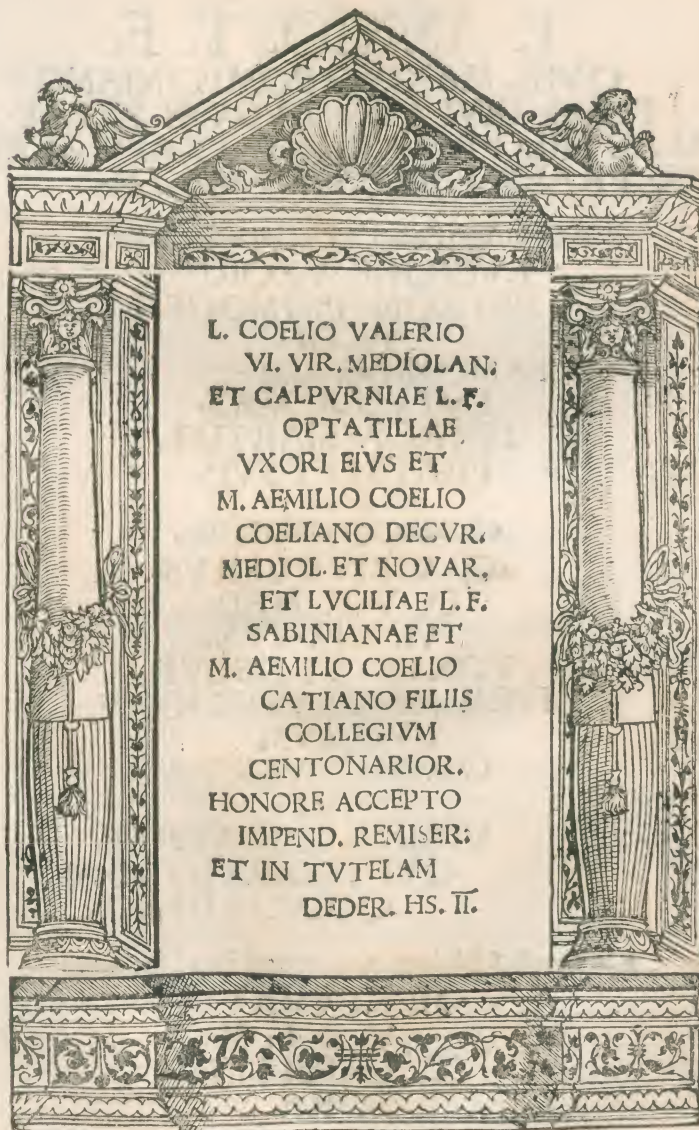 L. COELIO VALERIO
VI. VIR. MEDIOLAN.
ET CALPVRNIAE L. F.
OPTATILLAE
VXORI EIVS ET
M. AEMILIO COELIO
COELIANO DECVR.
MEDIOL. ET NOVAR.
ET LVCILIAE L. F.
SABINIANAE ET
M. AEMILIO COELIO
CATIANO FILIIS
COLLEGIVM
CENTONARIOR.
HONORE ACCEPTO
IMPEND. REMISER.
ET IN TVTELAM
DEDER. HS. I̅I̅.